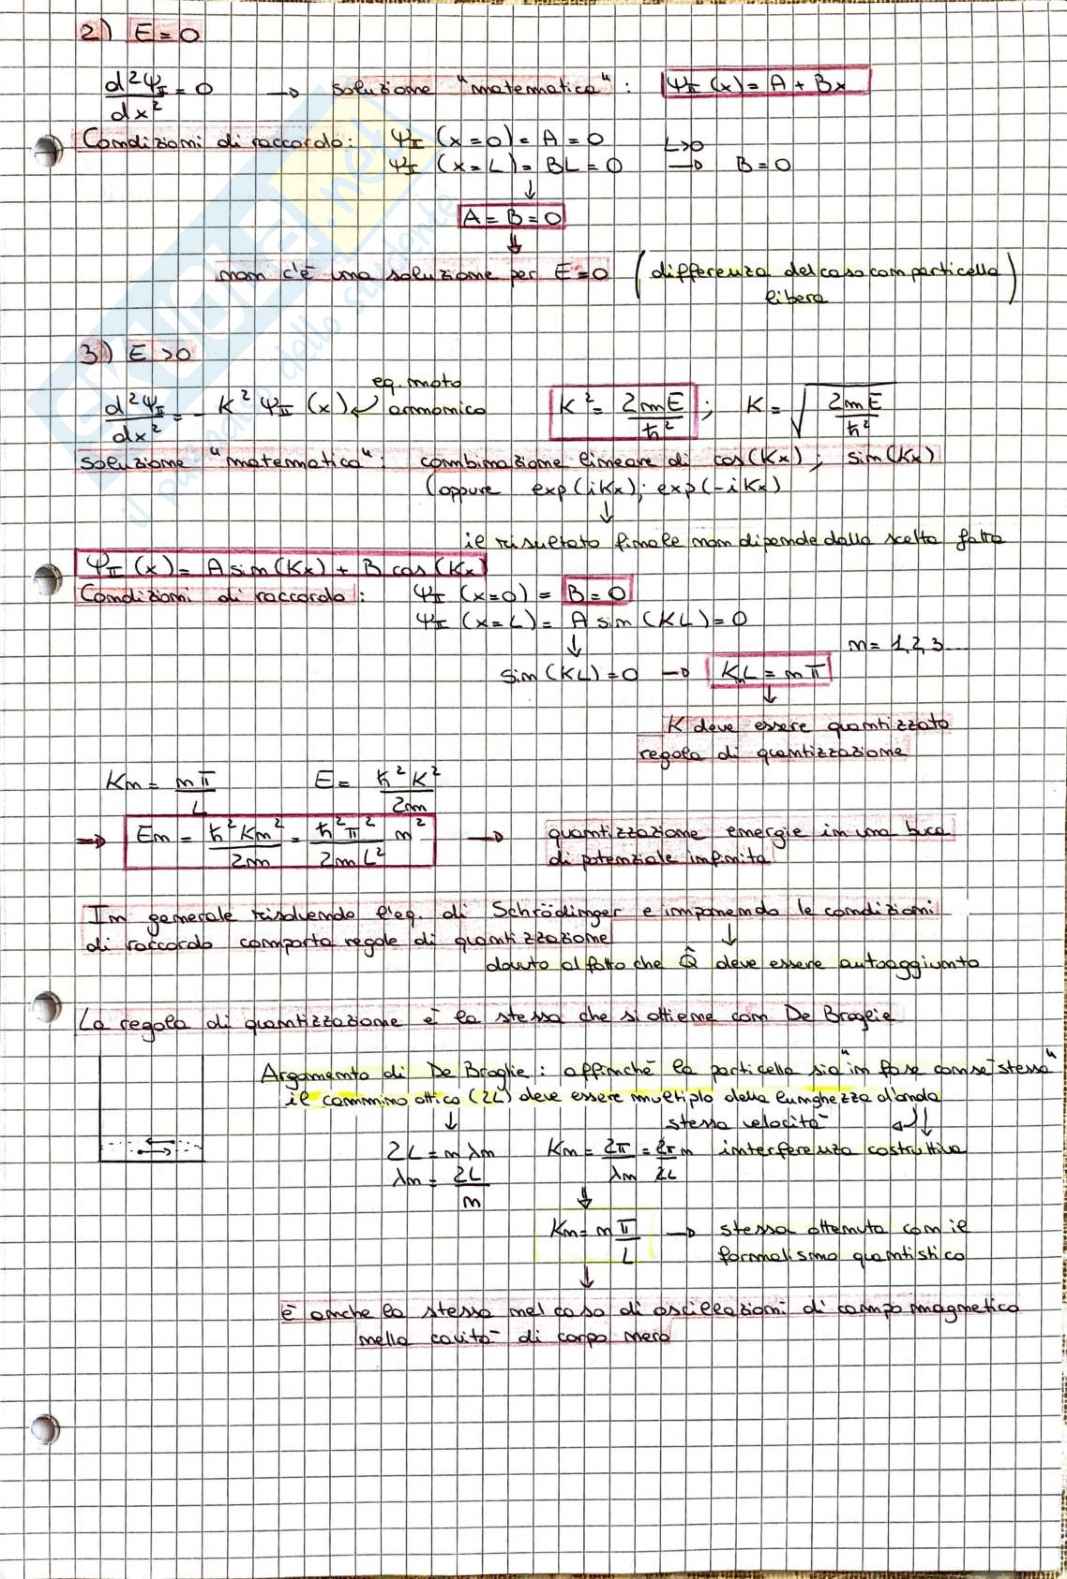 2) E=0
d²ψ_II/dx² = 0 → soluzione "matematica": ψ_II (x) = A + Bx
Condizioni di raccordo: ψ_II (x=0) = A = 0
ψ_II (x=L) = BL = 0 L>0 → B=0
↓
A = B = 0
⇓
non c'è una soluzione per E=0 (differenza del caso con particella
libera)
3) E >0
eq. moto
d²ψ_II/dx² = - K² ψ_II (x) armonico K² = 2mE/ħ² ; K = √(2mE/ħ²)
soluzione "matematica": combinazione lineare di cos(Kx); sin(Kx)
(oppure exp(iKx); exp(-iKx)
↓
il risultato finale non dipende dalla scelta fatta
ψ_II (x) = A sin(Kx) + B cos(Kx)
Condizioni di raccordo: ψ_II (x=0) = B = 0
ψ_II (x=L) = A sin(KL) = 0
↓ n= 1,2,3...
sin(KL) = 0 → KnL = nπ
↓
K deve essere quantizzato
regola di quantizzazione
Kn = nπ/L E = ħ²K²/2m
⇒ En = ħ²Kn²/2m = ħ²π²/2mL² n² → quantizzazione energie in una buca
di potenziale infinita
In generale risolvendo l'eq. di Schrödinger e imponendo le condizioni
di raccordo comporta regole di quantizzazione ↓
dovuto al fatto che Q̂ deve essere autoaggiunto
La regola di quantizzazione è la stessa che si ottiene con De Broglie
Argomento di De Broglie: affinchè la particella sia "in fase con se stessa"
il cammino ottico (2L) deve essere multiplo della lunghezza d'onda
↓ stessa velocità
2L = n λn Kn = 2π/λn = 2π/2L n interferenza costruttiva
λn = 2L/n
⇓
Kn = n π/L → stessa ottenuta con il
formalismo quantistico
↓
è anche la stessa nel caso di oscillazioni di campo magnetico
nella cavità di corpo nero